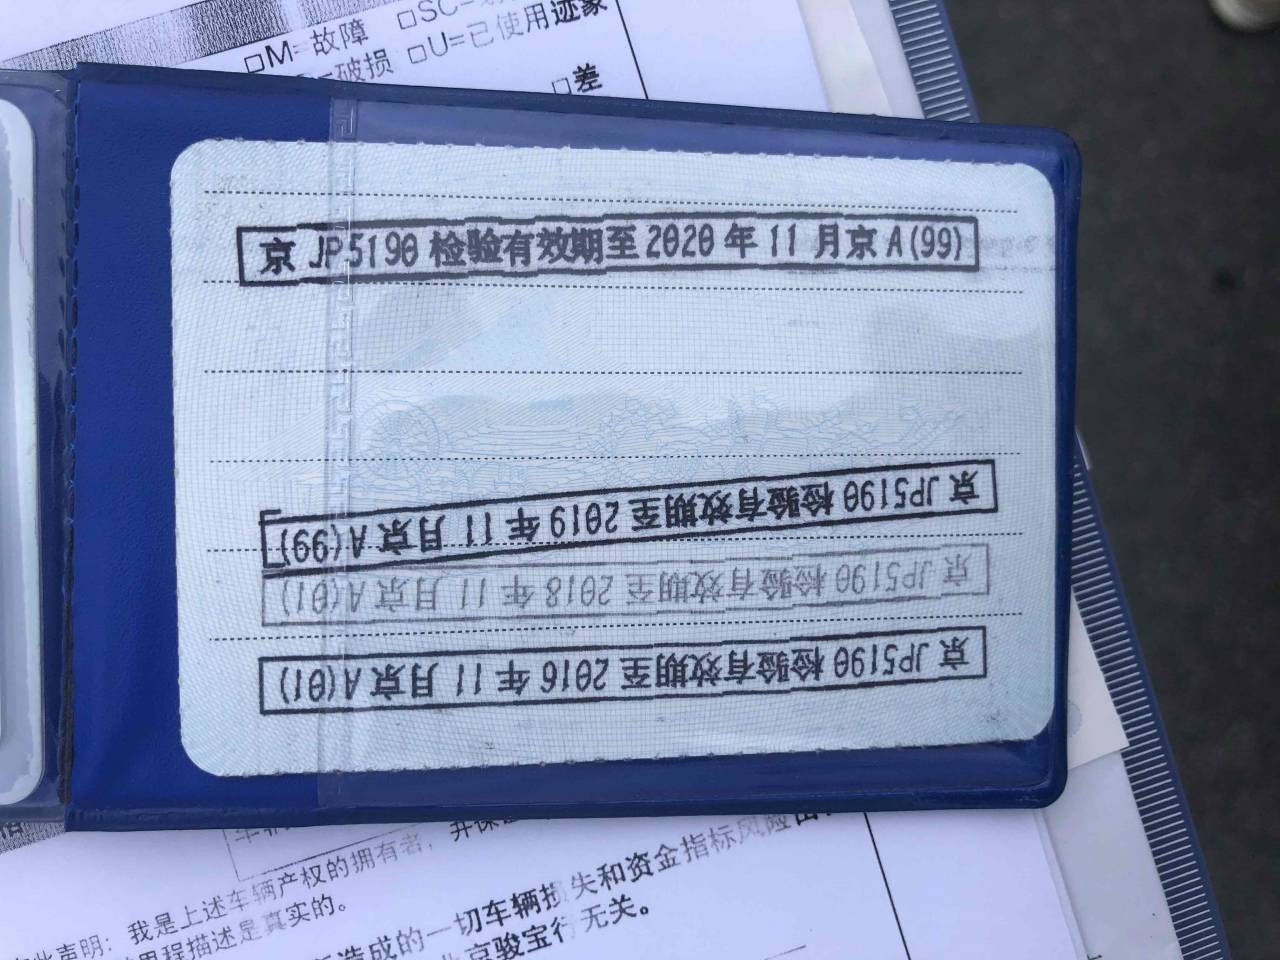 □M=故障 □SC=
=破损 □U=已使用迹象
□差
京 JP5190 检验有效期至 2020 年 11 月京 A(99)
京 JP5190 检验有效期至 2019 年 11 月京 A(99)
京 JP5190 检验有效期至 2018 年 11 月京 A(01)
京 JP5190 检验有效期至 2016 年 11 月京 A(01)
声明：我是上述车辆产权的拥有者，并保
里程描述是真实的。
造成的一切车辆损失和资金指标风险
京骏宝行无关。